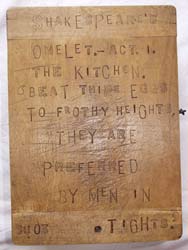 SHAKESPEARE'S
OMELET.-ACT. 1.
THE KITCHEN.
BEAT THINE EGGS
TO FROTHY HEIGHTS,
THEY ARE
PREFERRED
BY MEN IN
TIGHTS.